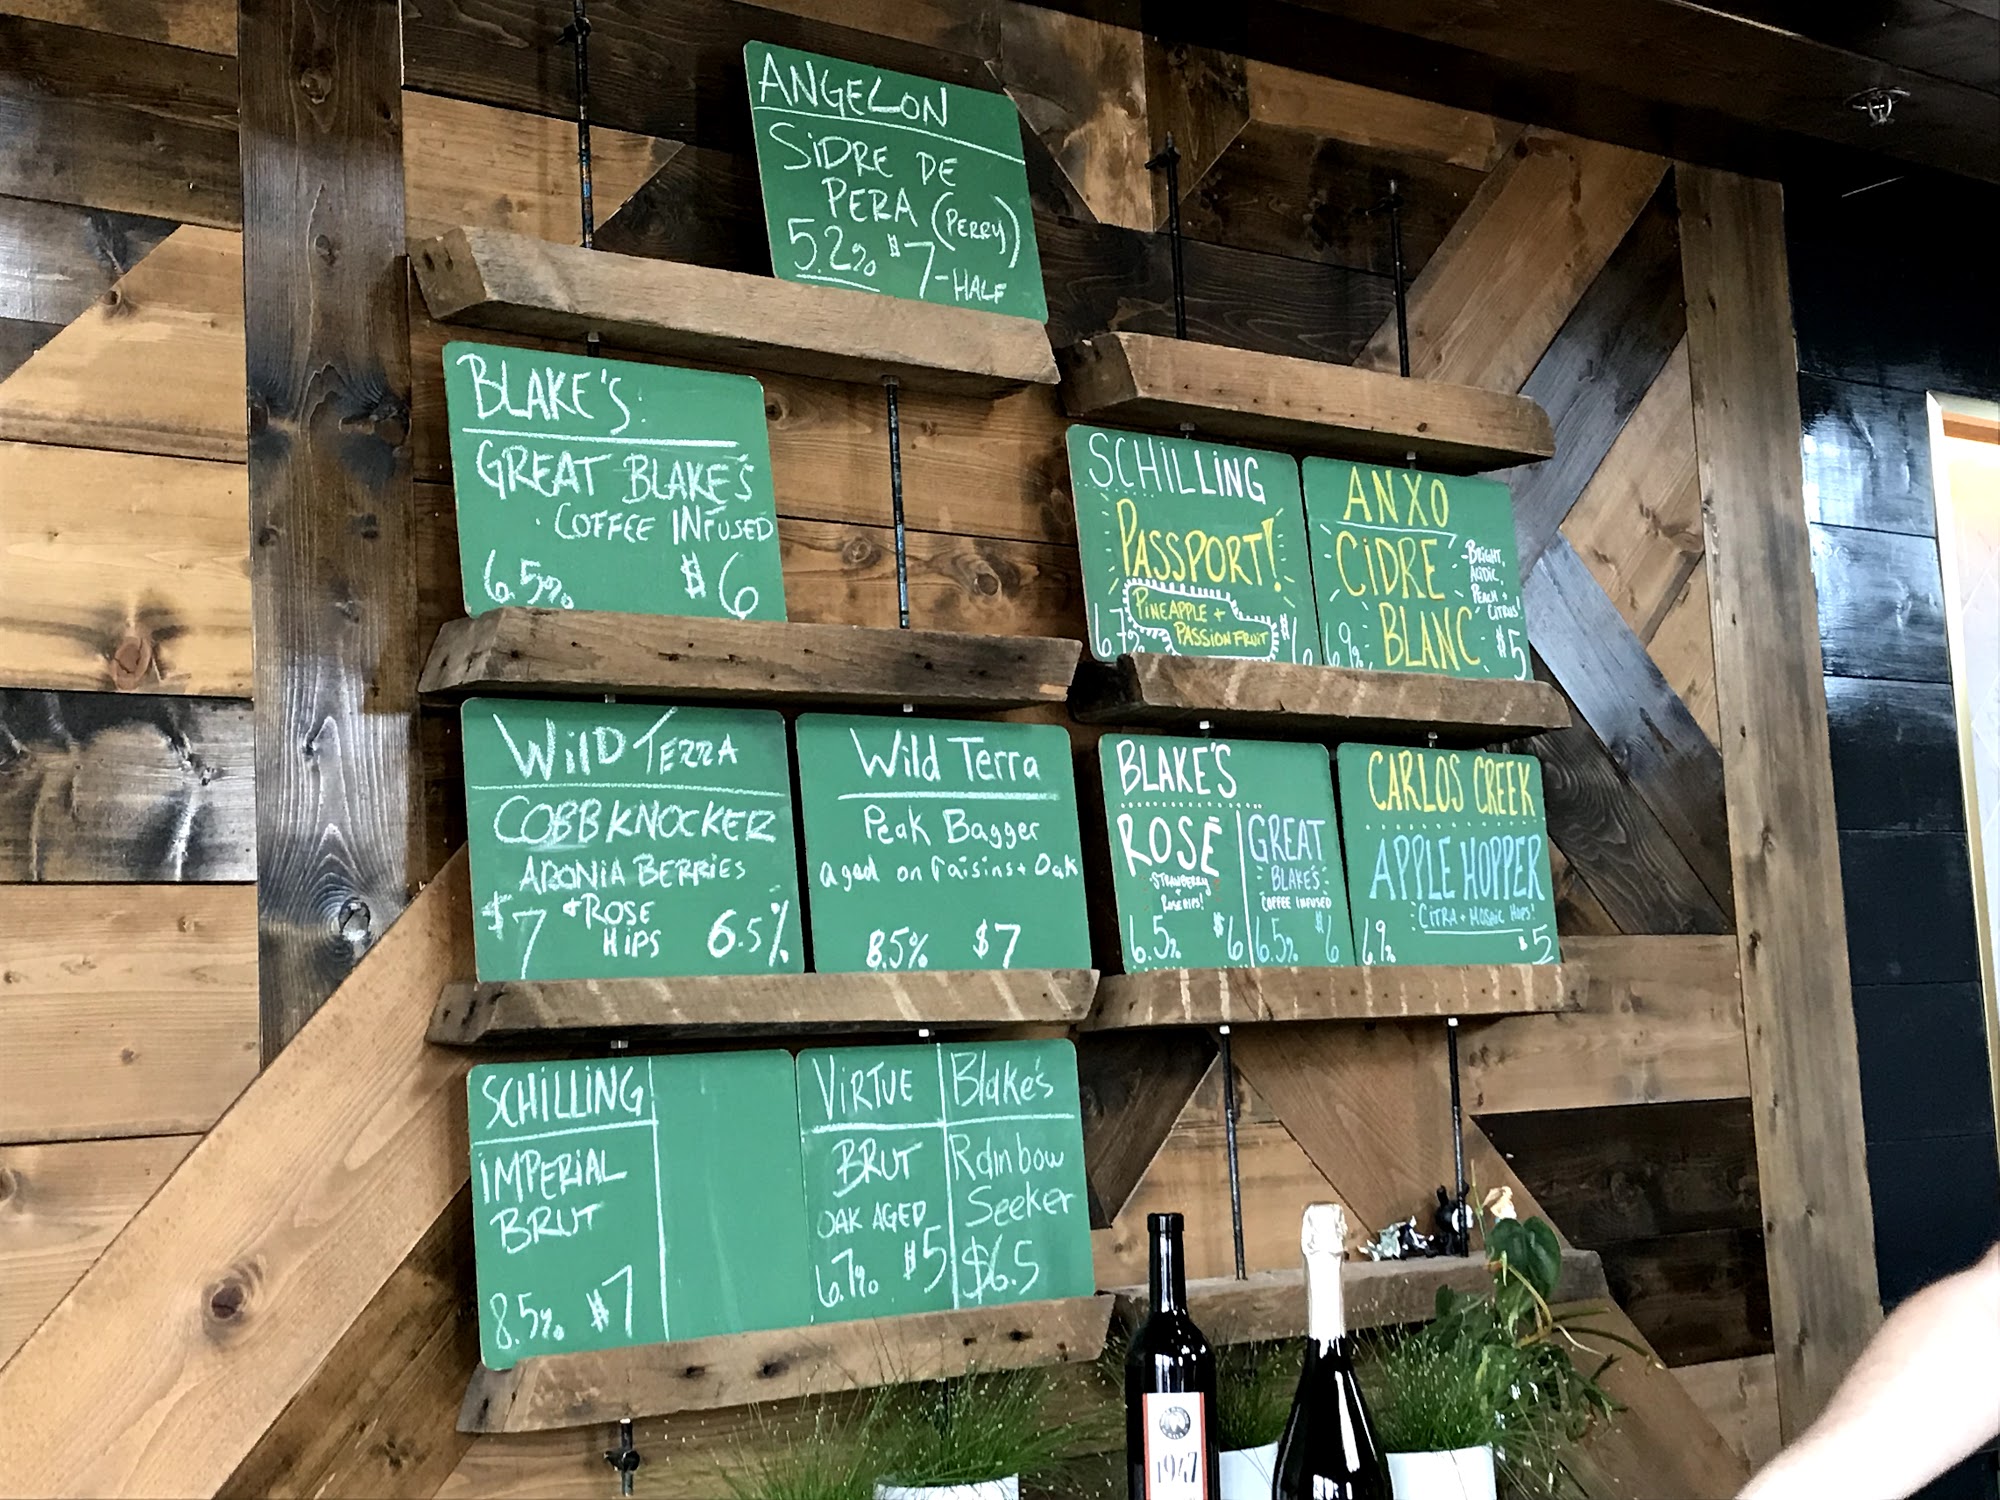 ANGELON
SIDRE DE
PERA (PERRY)
5.2% $7-HALF
BLAKE'S:
GREAT BLAKE'S
COFFEE INFUSED
6.5% $6
SCHILLING
PASSPORT!
PINEAPPLE +
PASSIONFRUIT
6.7% $6
ANXO
CIDRE
BLANC
BRIGHT,
ACIDIC,
PEACH +
CITRUS!
6.9% $5
WILD TERRA
COBBKNOCKER
ARONIA BERRIES
+ ROSE
HIPS
$7 6.5%
Wild Terra
Peak Bagger
aged on raisins + Oak
8.5% $7
BLAKE'S
ROSÉ
STRAWBERRY
+
ROSEHIPS!
6.5% $6
GREAT
BLAKE'S
COFFEE INFUSED
6.5% $6
CARLOS CREEK
APPLE HOPPER
CITRA + MOSAIC HOPS!
6.9% $5
SCHILLING
IMPERIAL
BRUT
8.5% $7
VIRTUE
BRUT
OAK AGED
6.7% $5
Blake's
Rainbow
Seeker
$6.5
1947